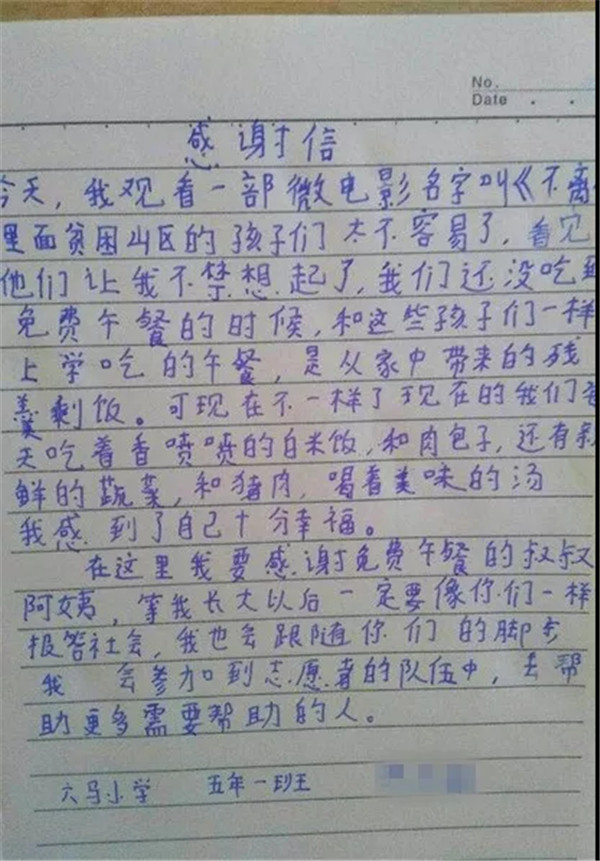 No.
Date . .
感谢信
今天，我观看一部微电影名字叫《不离
里面贫困山区的孩子们太不容易了，看见
他们让我不禁想起了，我们还没吃到
免费午餐的时候，和这些孩子们一样
上学吃的午餐，是从家中带来的残
羹剩饭。可现在不一样了现在的我们每
天吃着香喷喷的白米饭，和肉包子，还有新
鲜的蔬菜，和猪肉，喝着美味的汤
我感到了自己十分幸福。
在这里我要感谢免费午餐的叔叔
阿姨，等我长大以后一定要像你们一样
报答社会，我也会跟随你们的脚步
我 会参加到志愿者的队伍中，去帮
助更多需要帮助的人。
六马小学 五年一班